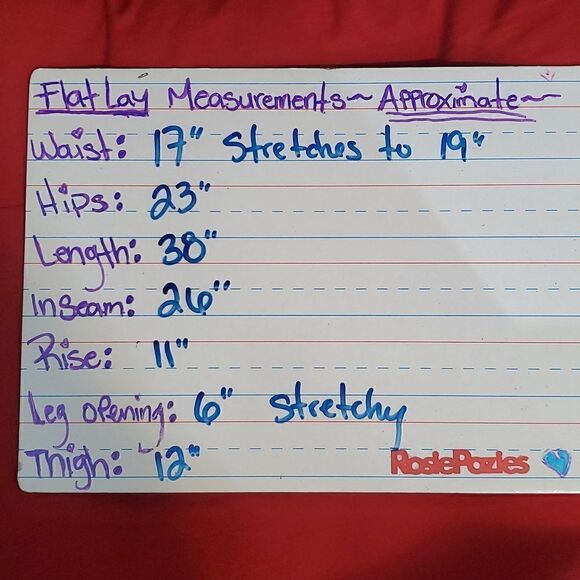 Flat Lay Measurements~ Approximate~
Waist: 17" Stretches to 19"
Hips: 23"
Length: 38"
Inseam: 26"
Rise: 11"
Leg opening: 6" Stretchy
Thigh: 12"
RosiePozies